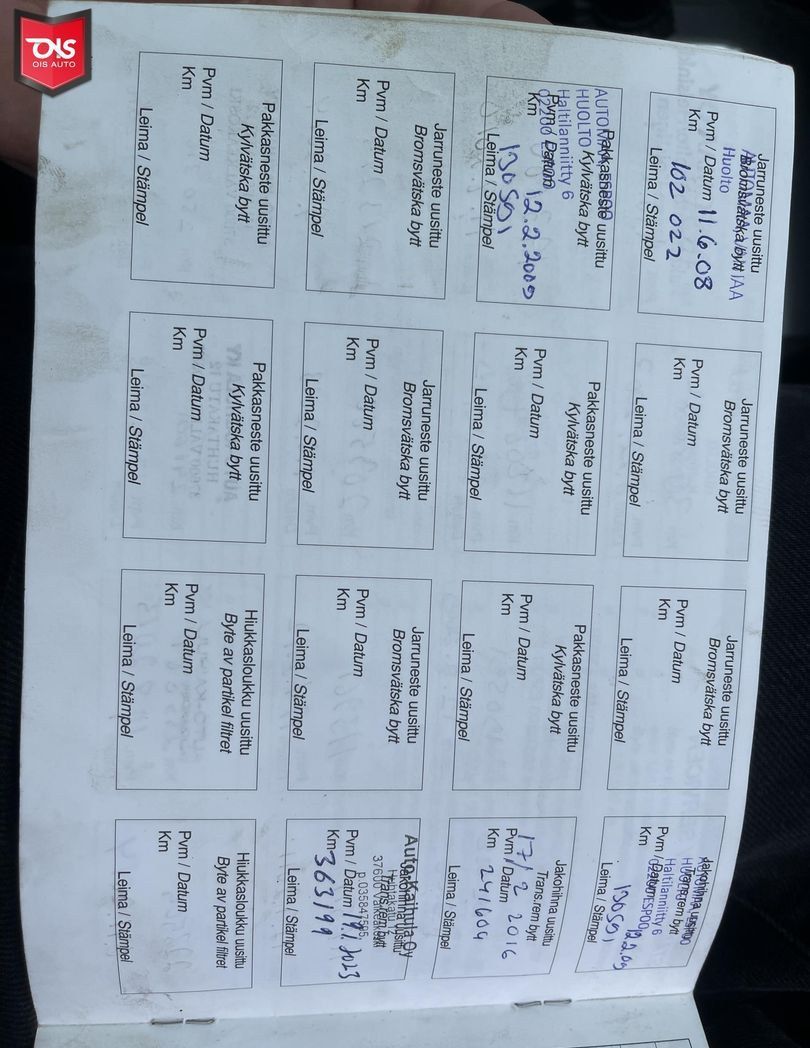 OIS
OIS AUTO
Jarruneste uusittu
Bromsvätska bytt
Huolto
Pvm / Datum 11.6.08
Km 102 022
Leima / Stämpel
Jarruneste uusittu
Bromsvätska bytt
Pvm / Datum
Km
Leima / Stämpel
Jarruneste uusittu
Bromsvätska bytt
Pvm / Datum
Km
Leima / Stämpel
Jakohihna uusittu
Trans.rem bytt
Haltilanniitty 6
Pvm / Datum
Km
Leima / Stämpel
Pakkasneste uusittu
HUOLTO Kylvätska bytt
Haltilanniitty 6
Pvm / Datum 12.2.2009
Km 130501
Leima / Stämpel
Pakkasneste uusittu
Kylvätska bytt
Pvm / Datum
Km
Leima / Stämpel
Pakkasneste uusittu
Kylvätska bytt
Pvm / Datum
Km
Leima / Stämpel
Jakohihna uusittu
Trans.rem bytt
Pvm / Datum 17/2 2016
Km 241604
Leima / Stämpel
Jarruneste uusittu
Bromsvätska bytt
Pvm / Datum
Km
Leima / Stämpel
Jarruneste uusittu
Bromsvätska bytt
Pvm / Datum
Km
Leima / Stämpel
Jarruneste uusittu
Bromsvätska bytt
Pvm / Datum
Km
Leima / Stämpel
Auto-Kaihula Oy
Jakohihna uusittu
Trans.rem bytt
p.035847595
Pvm / Datum
Km 363199
Leima / Stämpel
Pakkasneste uusittu
Kylvätska bytt
Pvm / Datum
Km
Leima / Stämpel
Pakkasneste uusittu
Kylvätska bytt
Pvm / Datum
Km
Leima / Stämpel
Hiukkasloukku uusittu
Byte av partikel filtret
Pvm / Datum
Km
Leima / Stämpel
Hiukkasloukku uusittu
Byte av partikel filtret
Pvm / Datum
Km
Leima / Stämpel